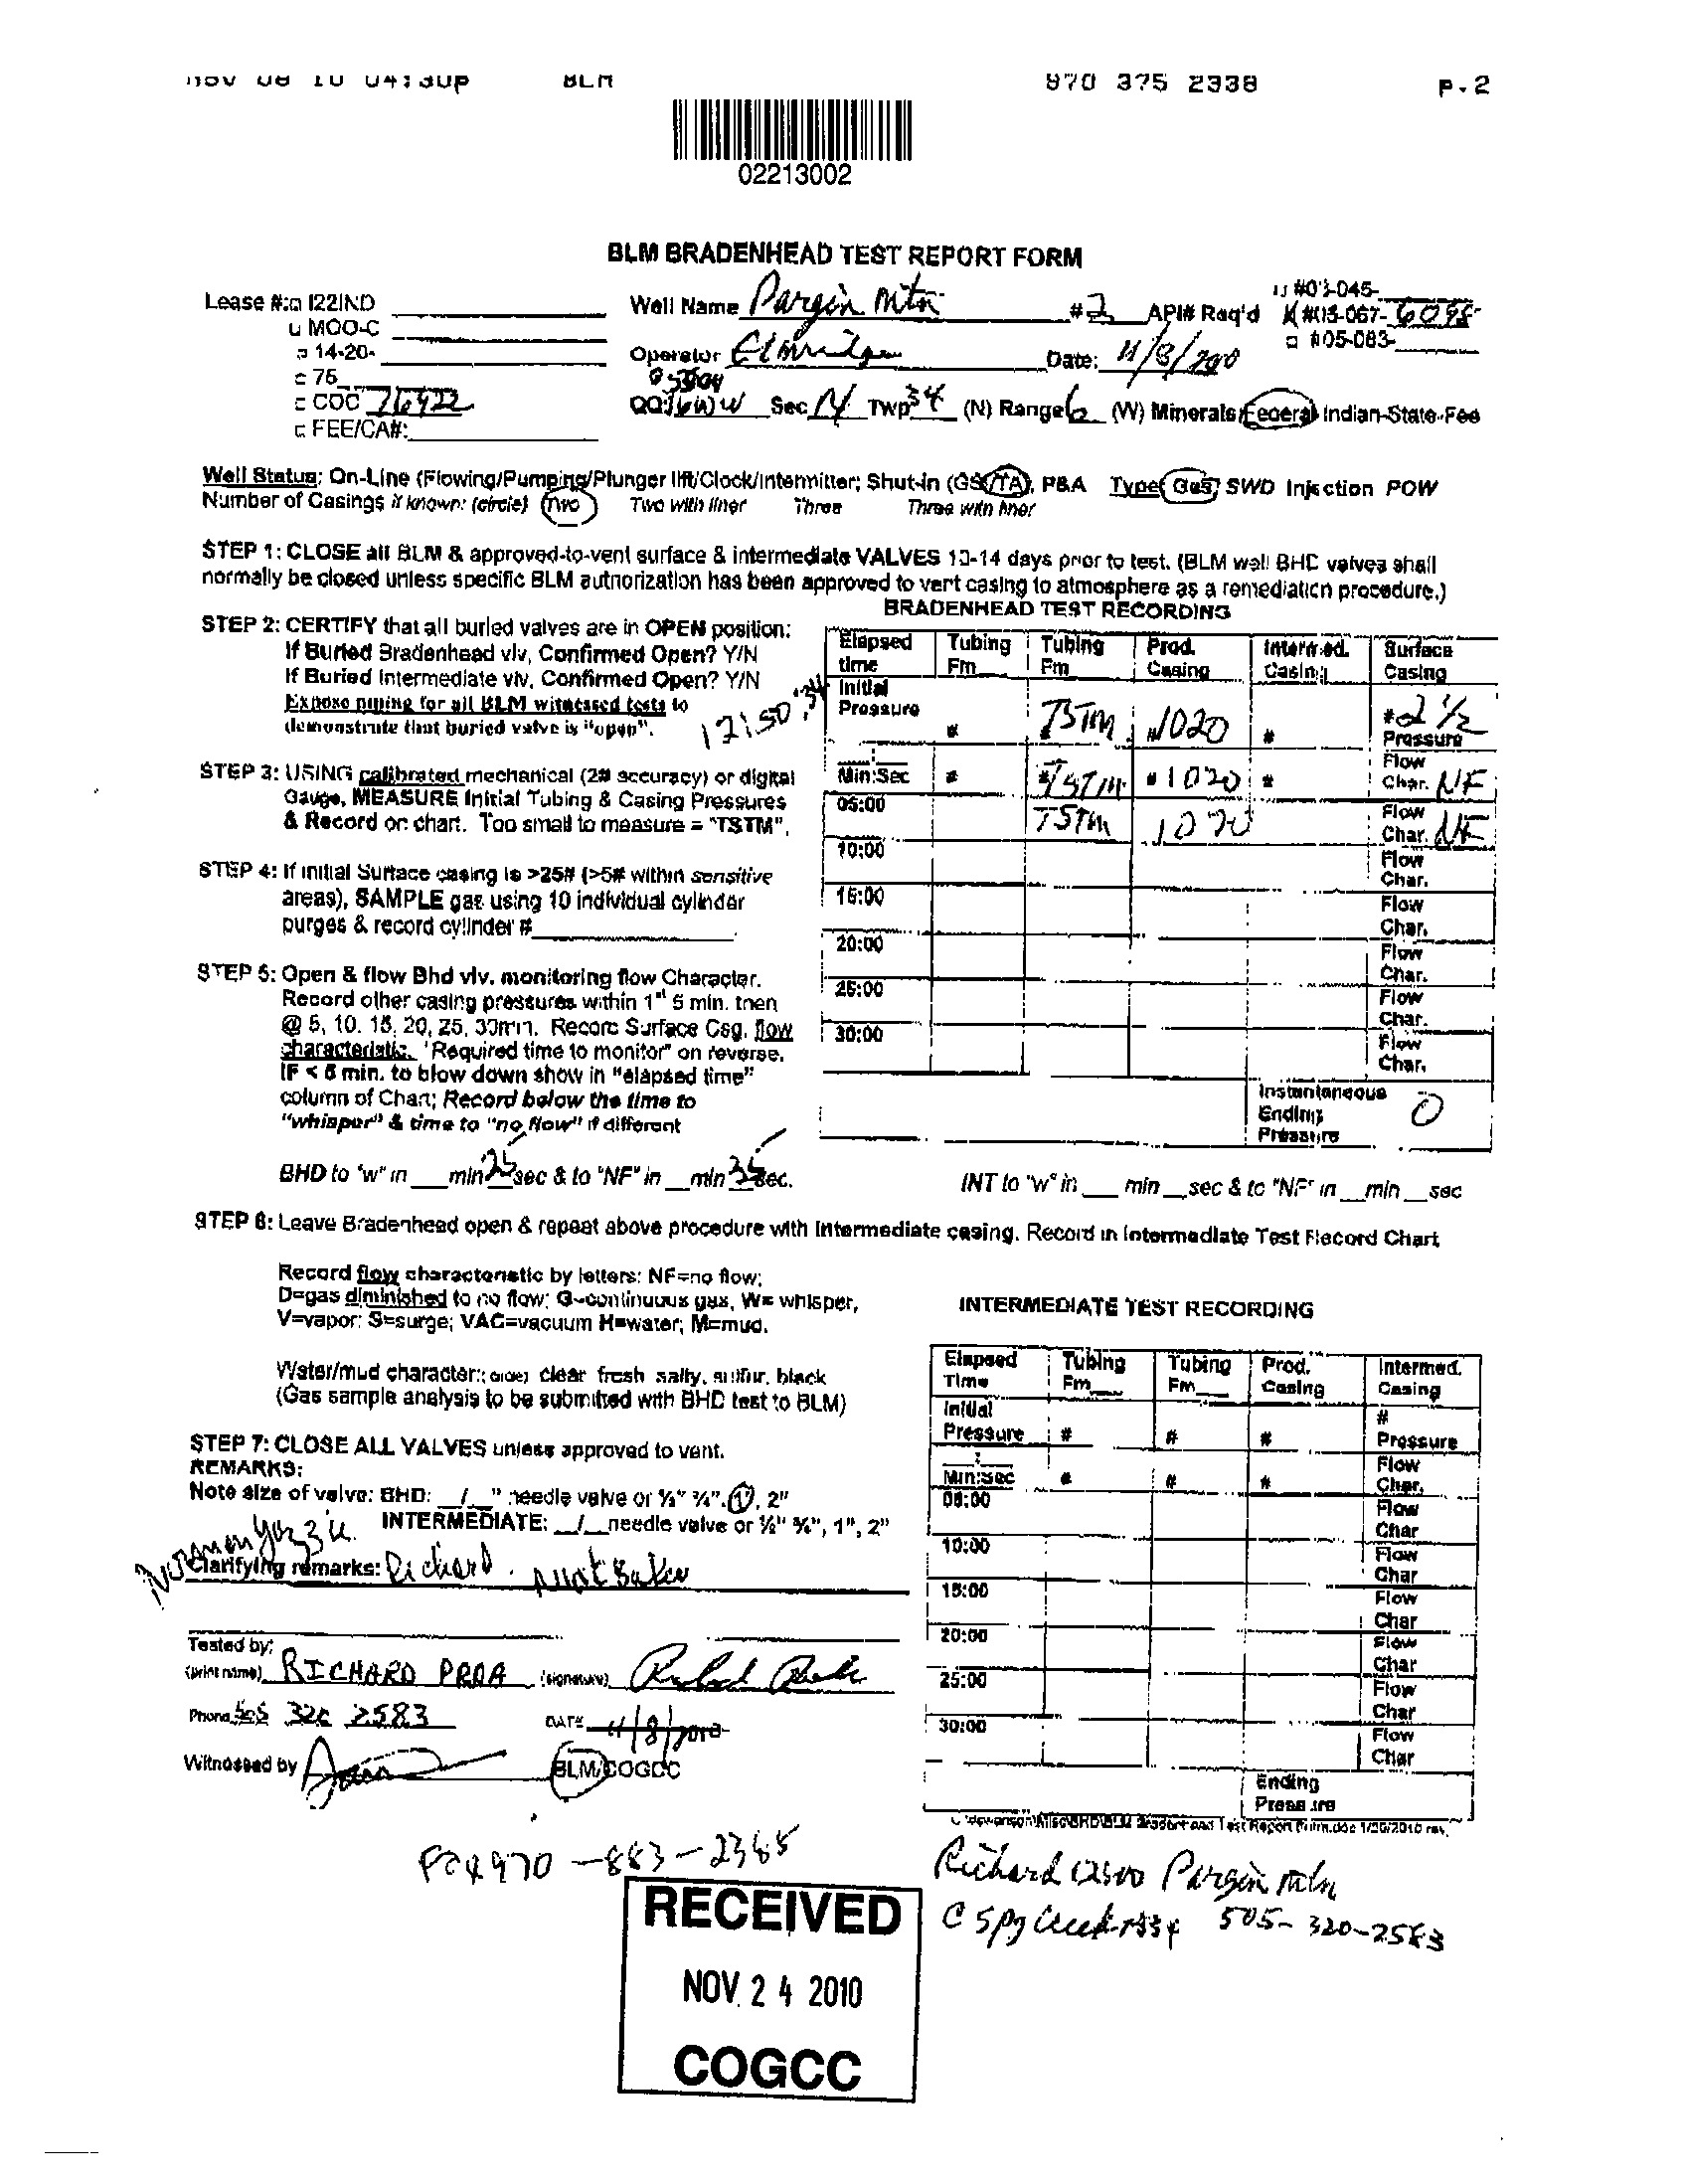 NOV 08 10 04:30p BLM 970 375 2338 p.2
02213002
BLM BRADENHEAD TEST REPORT FORM
Lease #: I22IND
MOO-C
14-20-
75
COC 76422
FEE/CA#:
Well Name Pargin Mtn #2 API# Req'd
#05-045-
#05-067- 6098
#05-083-
Operator Elmridge Date: 11/8/2010
QQ: Sec N Twp 34 (N) Range 6 (W) Minerals Federal Indian-State-Fee
Well Status: On-Line (Flowing/Pumping/Plunger lift/Clock/Intermitter; Shut-in (GS/TA), P&A Type: Gas, SWD Injection POW
Number of Casings if known: (circle) Two Two with liner Three Three with liner
STEP 1: CLOSE all BLM & approved-to-vent surface & intermediate VALVES 10-14 days prior to test. (BLM well BHD valves shall
normally be closed unless specific BLM authorization has been approved to vent casing to atmosphere as a remediation procedure.)
STEP 2: CERTIFY that all buried valves are in OPEN position:
If Buried Bradenhead vlv, Confirmed Open? Y/N
If Buried Intermediate vlv, Confirmed Open? Y/N
Expose piping for all BLM witnessed tests to
demonstrate that buried valve is "open".
12:50:34
STEP 3: USING calibrated mechanical (2# accuracy) or digital
Gauge, MEASURE Initial Tubing & Casing Pressures
& Record on chart. Too small to measure = "TSTM".
STEP 4: If initial Surface casing is >25# (>5# within sensitive
areas), SAMPLE gas using 10 individual cylinder
purges & record cylinder #
STEP 5: Open & flow Bhd vlv. monitoring flow Character.
Record other casing pressures within 1st 5 min. then
@ 5, 10, 15, 20, 25, 30min. Record Surface Csg. flow
characteristic. "Required time to monitor" on reverse.
IF < 5 min. to blow down show in "elapsed time"
column of Chart; Record below the time to
"whisper" & time to "no flow" if different
BHD to "w" in __min 25 sec & to "NF" in __min 35 sec.
BRADENHEAD TEST RECORDING
Elapsed time Tubing Fm Tubing Fm Prod. Casing Intermed. Casing Surface Casing
Initial Pressure # TSTM # 1020 # # 2 1/2 Pressure
Min:Sec # # TSTM # 1020 # Flow Char. NF
05:00 TSTM 1020 Flow Char. NF
10:00 Flow Char.
15:00 Flow Char.
20:00 Flow Char.
25:00 Flow Char.
30:00 Flow Char.
Instantaneous Ending Pressure 0
INT to "w" in __ min __sec & to "NF" in __min __sec
STEP 6: Leave Bradenhead open & repeat above procedure with Intermediate casing. Record in Intermediate Test Record Chart
Record flow characteristic by letters: NF=no flow;
D=gas diminished to no flow; G=continuous gas, W= whisper,
V=vapor: S=surge; VAC=vacuum H=water; M=mud.
Water/mud character: (circle) clear fresh salty, sulfur, black
(Gas sample analysis to be submitted with BHD test to BLM)
STEP 7: CLOSE ALL VALVES unless approved to vent.
REMARKS:
Note size of valve: BHD: _/_" needle valve or ½" ¾", 1", 2"
INTERMEDIATE: _/_needle valve or ½" ¾", 1", 2"
Clarifying remarks: Richard
INTERMEDIATE TEST RECORDING
Elapsed Time Tubing Fm Tubing Fm Prod. Casing Intermed. Casing
Initial Pressure # # # # Pressure
Min:Sec # # # Flow Char.
05:00 Flow Char
10:00 Flow Char
15:00 Flow Char
20:00 Flow Char
25:00 Flow Char
30:00 Flow Char
Ending Pressure
Tested by:
(print name) RICHARD PROA (signature)
Phone 505 320 2583 DATE 11/8/2010
Witnessed by BLM/COGCC
Fax 970-883-2365
Richard Pargin Mtn
505-320-2583
RECEIVED
NOV 24 2010
COGCC